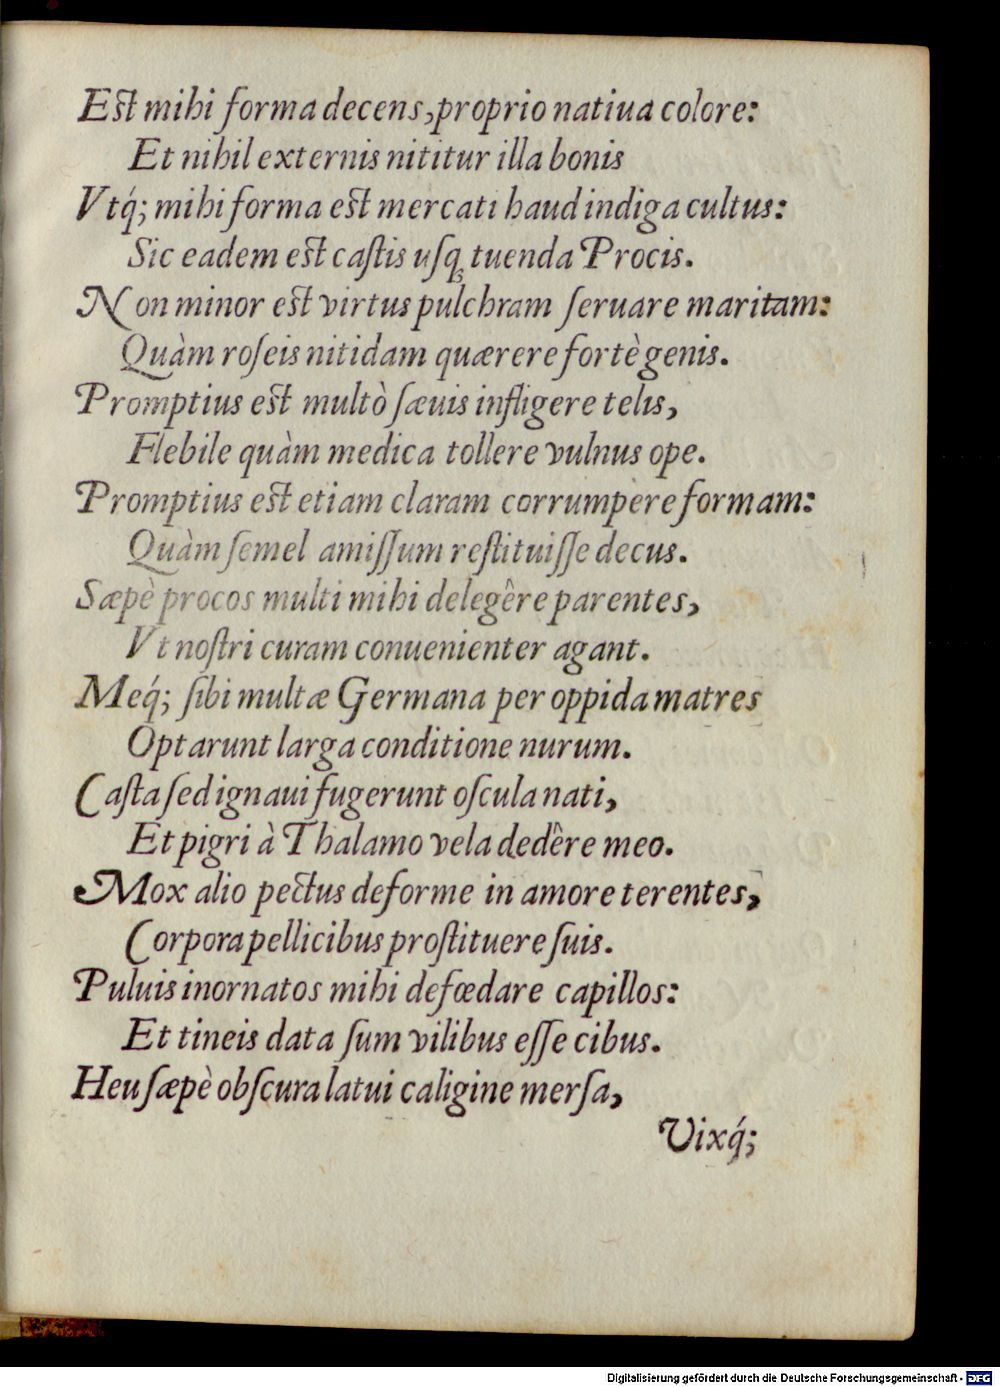 Est mihi forma decens, proprio natiua colore:
Et nihil externis nititur illa bonis
Vtq́; mihi forma est mercati haud indiga cultus:
Sic eadem est caſtis uſq; tuenda Procis.
Non minor est virtus pulchram ſeruare maritam:
Quàm roſeis nitidam quærere fortè genis.
Promptius est multò ſæuis infligere telis,
Flebile quàm medica tollere vulnus ope.
Promptius est etiam claram corrumpere formam:
Quàm ſemel amiſſum reſtituiſſe decus.
Sæpè procos multi mihi delegêre parentes,
Vt noſtri curam conuenienter agant.
Meq́; ſibi multæ Germana per oppida matres
Optarunt larga conditione nurum.
Caſta ſed ignaui fugerunt oſcula nati,
Et pigri à Thalamo vela dedêre meo.
Mox alio pectus deforme in amore terentes,
Corpora pellicibus proſtituere ſuis.
Puluis inornatos mihi defœdare capillos:
Et tineis data ſum vilibus eſſe cibus.
Heu ſæpè obſcura latui caligine merſa,
Vixq́;
Digitalisierung gefördert durch die Deutsche Forschungsgemeinschaft - DFG